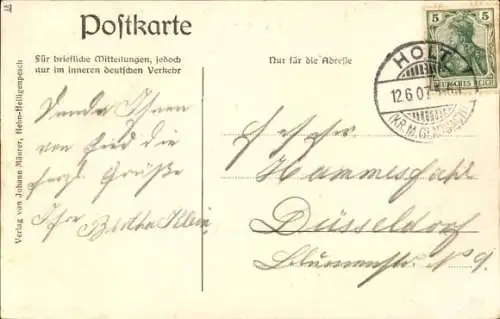 Postkarte
Für briefliche Mitteilungen, jedoch
nur im inneren deutschen Verkehr
Nur für die Adresse
5 5
DEUTSCHES REICH
HOLT
12.6.07
(KR. M. GLADBACH)
Verlag von Johann Mäurer, Hehn-Heiligenpesch
Sende Ihnen
von hier die
herzl. Grüße
Ihre Bertha Klein
Hammesfahr
Düsseldorf
Blumenstr. No 9.